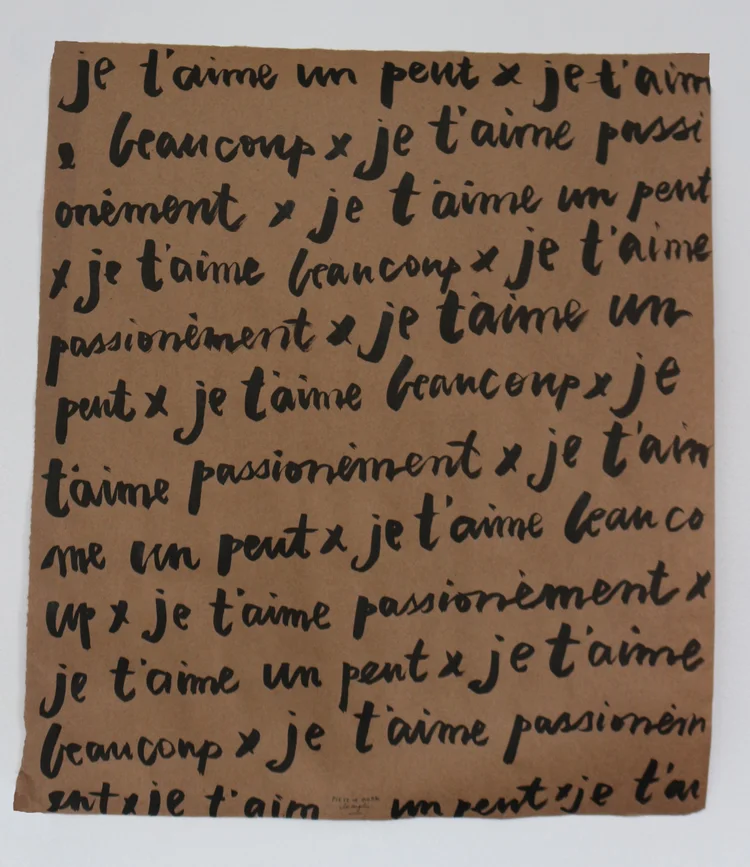 je t'aime un peut x je t'aim
e beaucoup x je t'aime passi
onèment x je t'aime un peut
x je t'aime beaucoup x je t'aime
passionèment x je t'aime un
peut x je t'aime beaucoup x je
t'aime passionèment x je t'aim
me un peut x je t'aime beauco
up x je t'aime passionèment x
je t'aime un peut x je t'aime
beaucoup x je t'aime passionèm
ent x je t'aim un peut x je t'ai